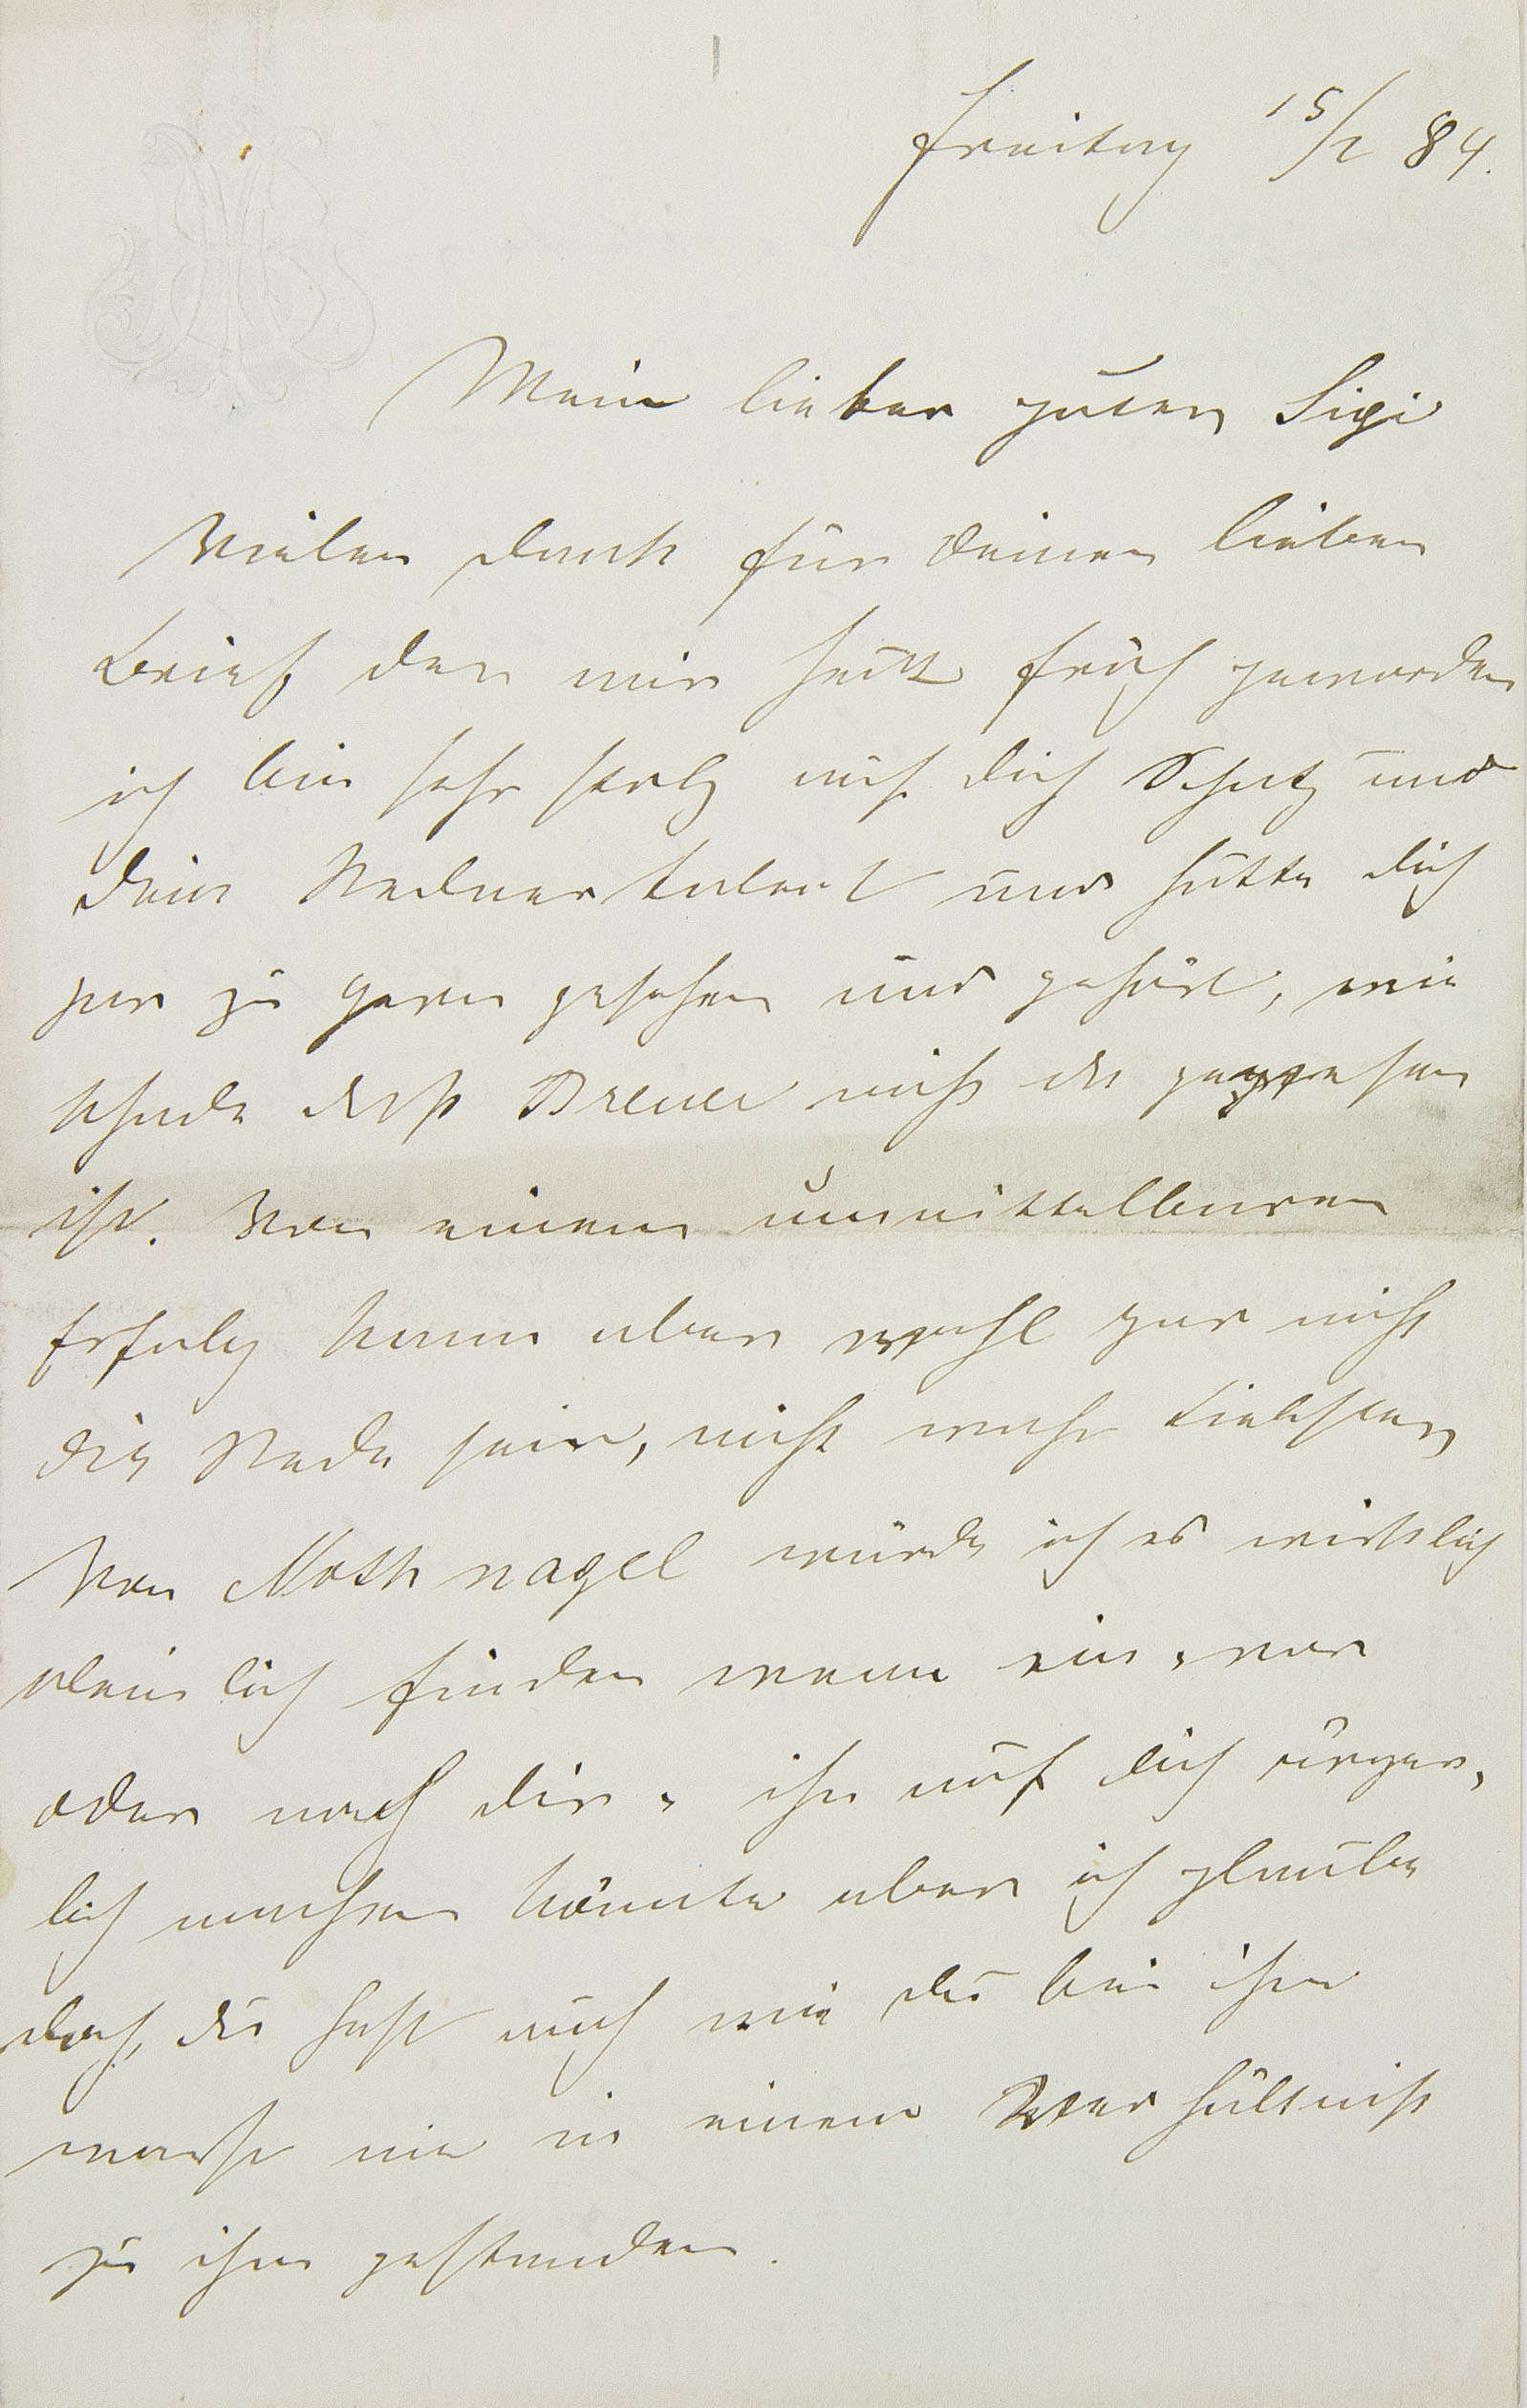 Freitag 15/2 84.
Mein lieber guter Sigi
Vielen Dank für deinen lieben
Brief, der mir heute früh geworden
ich bin sehr stolz auf dich Schatz und
dein Rednertalent und hätte dich
gar zu gern gesehen und gehört, wie
schade daß Breuer nicht da gewesen
ist. Von einem unmittelbaren
Erfolg kann aber wohl gar nicht
die Rede sein, nicht wahr Liebster,
Von Nothnagel würde ich es wirklich
kleinlich finden wenn ein „vor
oder nach dir“ ihn auf dich ärger-
lich machen könnte aber ich glaube
doch, du hast auch wie du bei ihm
warst nie in einem Verhältniß
zu ihm gestanden.